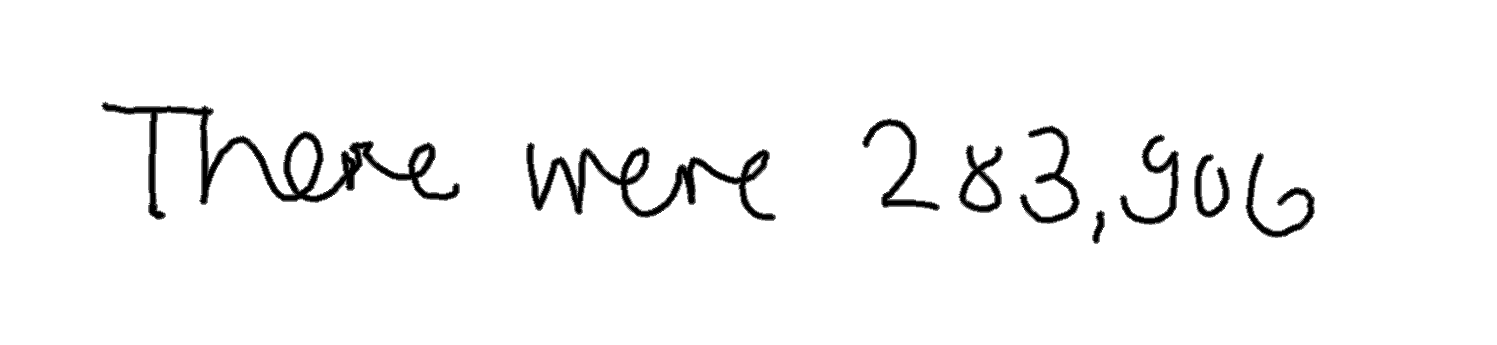 There were 283,906